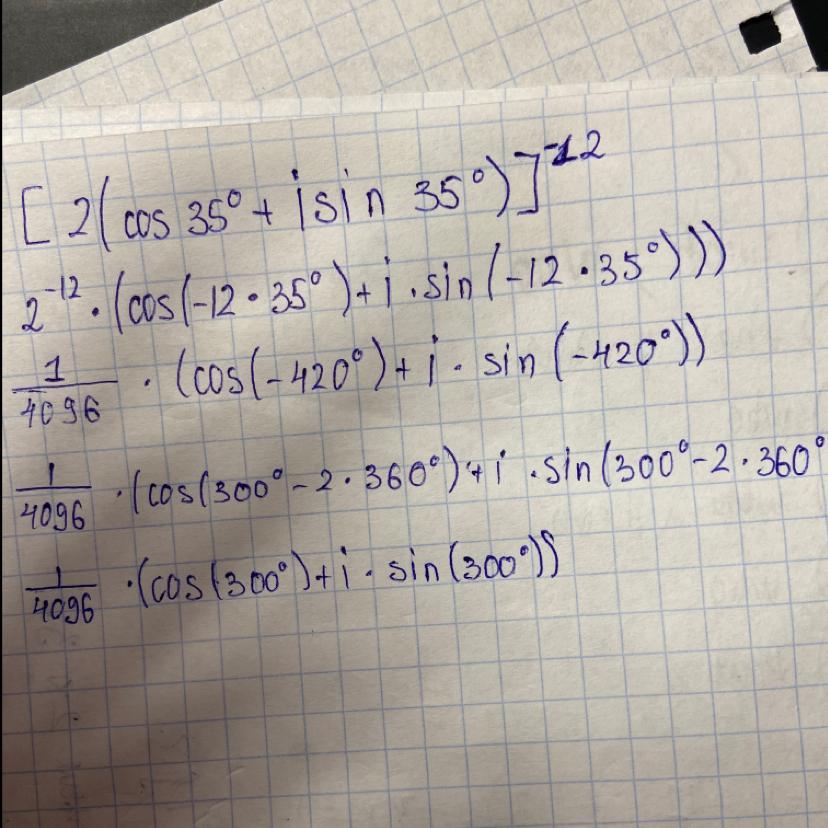 [2(cos 35° + i sin 35°)]^-12
2^-12 · (cos(-12 · 35°) + i · sin(-12 · 35°)))
1/4096 · (cos(-420°) + i · sin(-420°))
1/4096 · (cos(300° - 2 · 360°) + i · sin(300° - 2 · 360°
1/4096 · (cos(300°) + i · sin(300°))